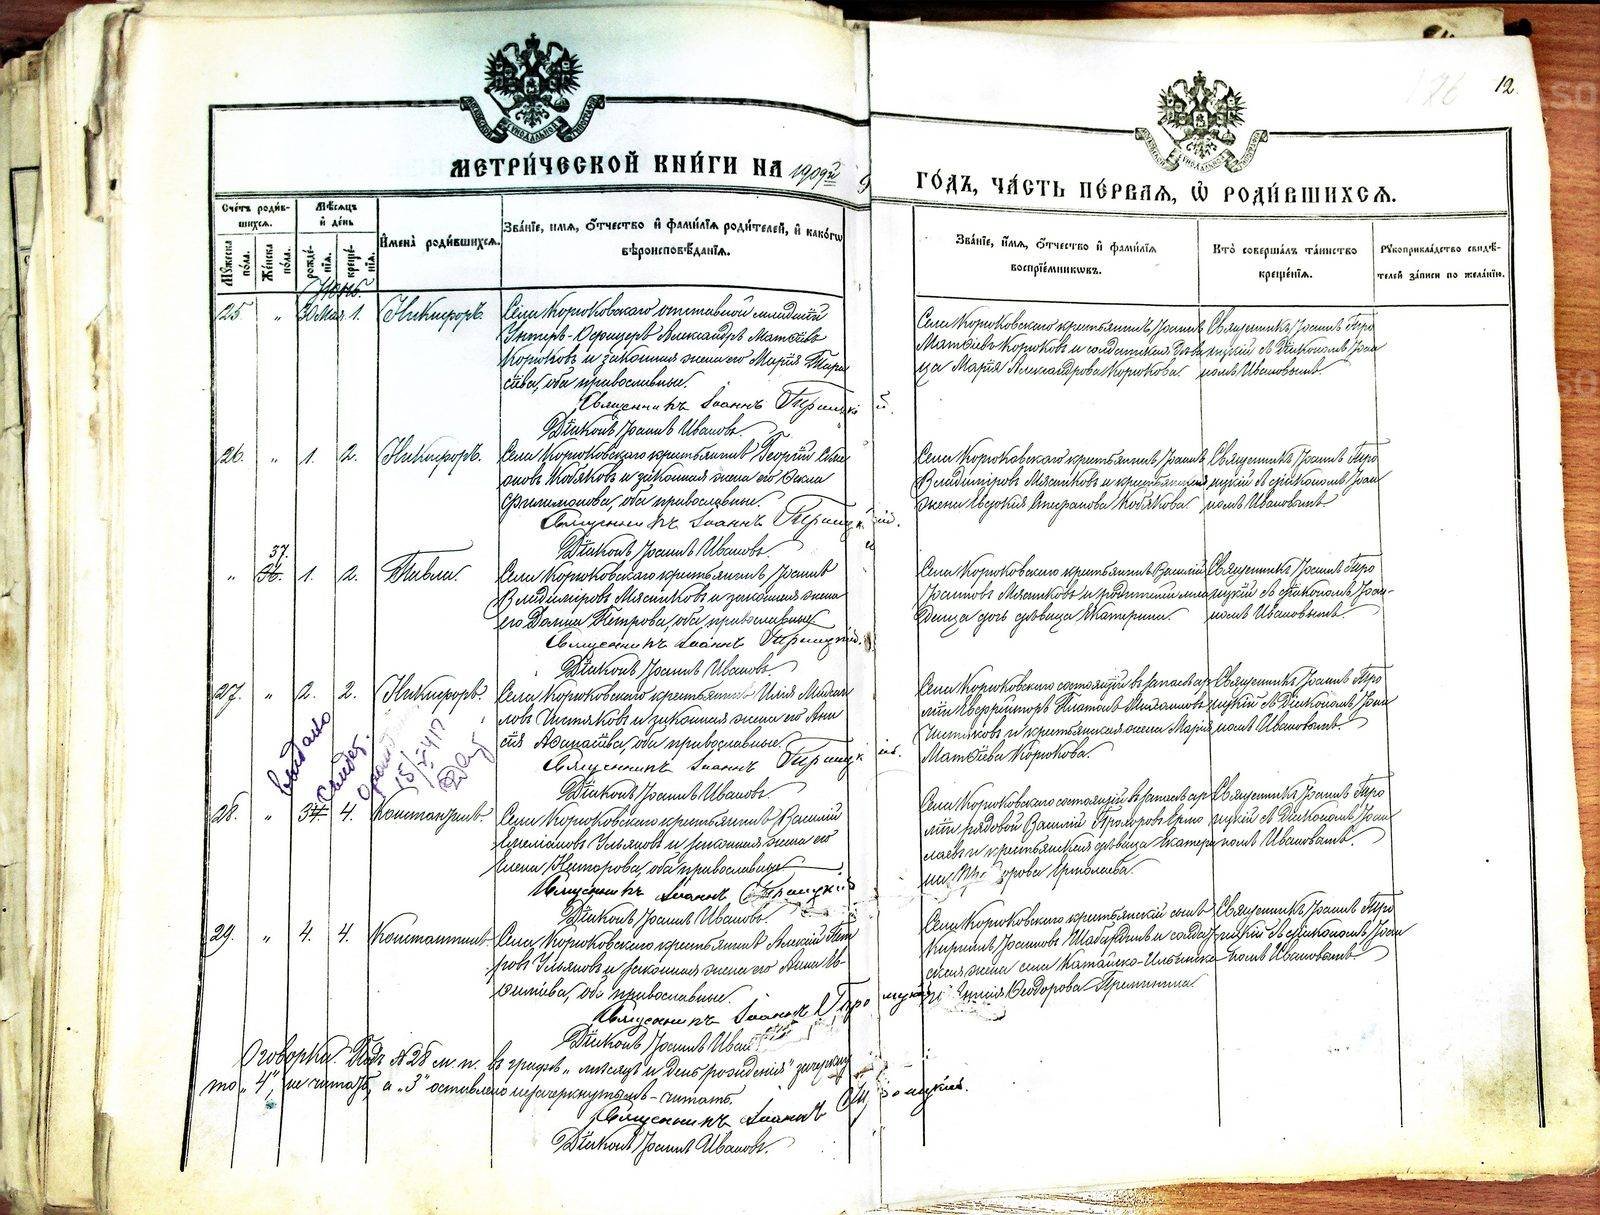 126 12.
МЕТРИ́ЧЕСКОЙ КНИ́ГИ НА 1909й ГО́ДЪ, ЧА́СТЬ ПЕ́РВАЯ, Ѽ РОДИ́ВШИХСЯ.
Сче́тъ роди́в-
шихся.
Му́жеска по́ла.
Же́нска по́ла.
Мѣ́сяцъ
и҆ де́нь
рожде́-
нїя.
креще́-
нїя.
И҆мена̀ роди́вшихся.
Зва́нїе, и҆́мя, ѻ҆́тчество и҆ фами́лїя роди́телей, и҆ како́гѡ
вѣроисповѣ́данїя.
Зва́нїе, и҆́мя, ѻ҆́тчество и҆ фами́лїя
воспрїе́мникѡвъ.
Кто̀ соверша́лъ та́инство
креще́нїя.
Рꙋкоприкла́дство свидѣ́-
телей за́писи по жела́нїю.
Іюнь.
25 " 30 Мая 1. Никифоръ.
Села Корюковскаго отставной младшій
Унтеръ-Офицеръ Александръ Матѳіевъ
Корюковъ и законная жена его Марія Тара
сіева, оба православные.
Священникъ Іоаннъ Троицкій.
Діаконъ Іоаннъ Ивановъ.
Села Корюковскаго крестьянинъ Іоаннъ
Матѳіевъ Корюковъ и солдатская дѣви
ца Марія Александрова Корюкова.
Священникъ Іоаннъ Тро
ицкій съ Діакономъ Іоан
номъ Ивановымъ.
26. " 1. 2. Никифоръ.
Села Корюковскаго крестьянинъ Георгій Симе
оновъ Кобяковъ и законная жена его Ѳекла
Филимонова, оба православные.
Священникъ Іоаннъ Троицкій.
Діаконъ Іоаннъ Ивановъ.
Села Корюковскаго крестьянинъ Іоаннъ
Владиміровъ Мясниковъ и крестьянская
жена Евдокія Стефанова Кобякова.
Священникъ Іоаннъ Тро
ицкій съ діакономъ Іоан
номъ Ивановымъ
37.
" 36. 1. 2. Павла.
Села Корюковскаго крестьянинъ Іоаннъ
Владиміровъ Мясниковъ и законная жена
его Домна Петрова, оба православные
Священникъ Іоаннъ Троицкій.
Діаконъ Іоаннъ Ивановъ.
Села Корюковскаго крестьянинъ Василій
Іоанновъ Мясниковъ и родители мла
денца дочь дѣвица Екатерина.
Священникъ Іоаннъ Тро
ицкій съ діакономъ Іоан-
номъ Ивановымъ
27. " 2. 2. Никифоръ.
Села Корюковскаго крестьянинъ Илія Михаи
ловъ Чистяковъ и законная жена его Ани
сія Аѳанасіева, оба православные.
Священникъ Іоаннъ Троицкій.
Діаконъ Іоаннъ Ивановъ.
Села Корюковскаго состоящій въ запасѣ ар
міи Ефрейторъ Платонъ Михаиловъ
Чистяковъ и крестьянская жена Марія
Матѳіева Корюкова.
Священникъ Іоаннъ Тро
ицкій съ Діакономъ Іоан
номъ Ивановымъ.
выдано
свидет.
15/V-417
28. " 34. 4. Константинъ.
Села Корюковскаго крестьянинъ Василій
Ульяновъ и законная жена его
Елена Нестерова, оба православные
Священникъ Іоаннъ Троицкій
Діаконъ Іоаннъ Ивановъ
Села Корюковскаго состоящій въ запасѣ ар
міи рядовой Василій Прохоровъ Ермо
лаевъ и крестьянская дѣвица Екатери
на орова Ермолаева.
Священникъ Іоаннъ Тро
ицкій съ Діакономъ Іоан
номъ Ивановымъ.
29. " 4. 4. Константинъ.
Села Корюковскаго крестьянинъ Алексій Пет
ровъ Ульяновъ и законная жена его Анна Ів
сифова, оба православные.
Священникъ Іоаннъ Троицкій
Діаконъ Іоаннъ Иван
Села Корюковскаго крестьянскій сынъ
Кириллъ Іоанновъ Шабалдинъ и солдат
ская жена села Катайско-Ильинска
Ѳеодорова
Священникъ Іоаннъ Тро
ицкій съ діакономъ Іоан
номъ Ивановымъ
Оговорка. Подъ №28 м. п. въ графѣ „мѣсяцъ и день рожденія" зачеркну
то „4", не читать, а „3" оставлено незачеркнутымъ - читать.
Священникъ Іоаннъ Троицкій.
Діаконъ Іоаннъ Ивановъ.